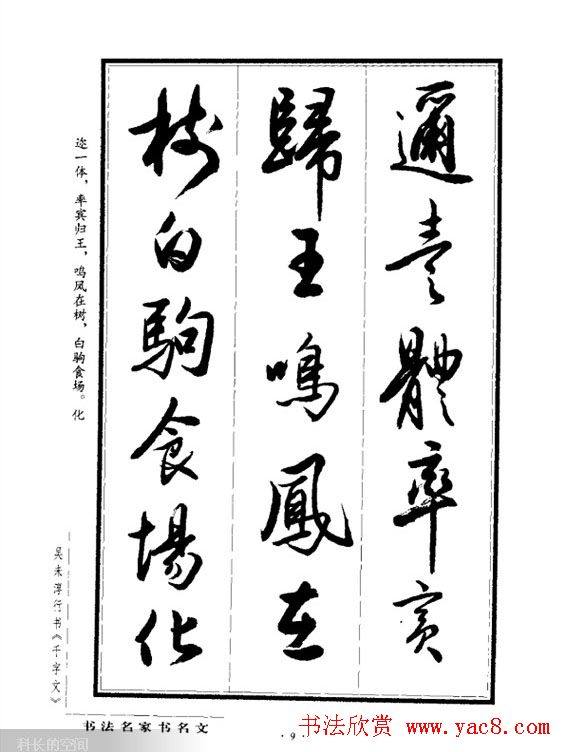 邇壹體率賓
歸王鳴鳳在
樹白駒食場化
迩一体，率宾归王，鸣凤在树，白驹食场。化
吴未淳行书《千字文》
书法名家书名文
· 9
书法欣赏 www.yac8.com
科长的空间